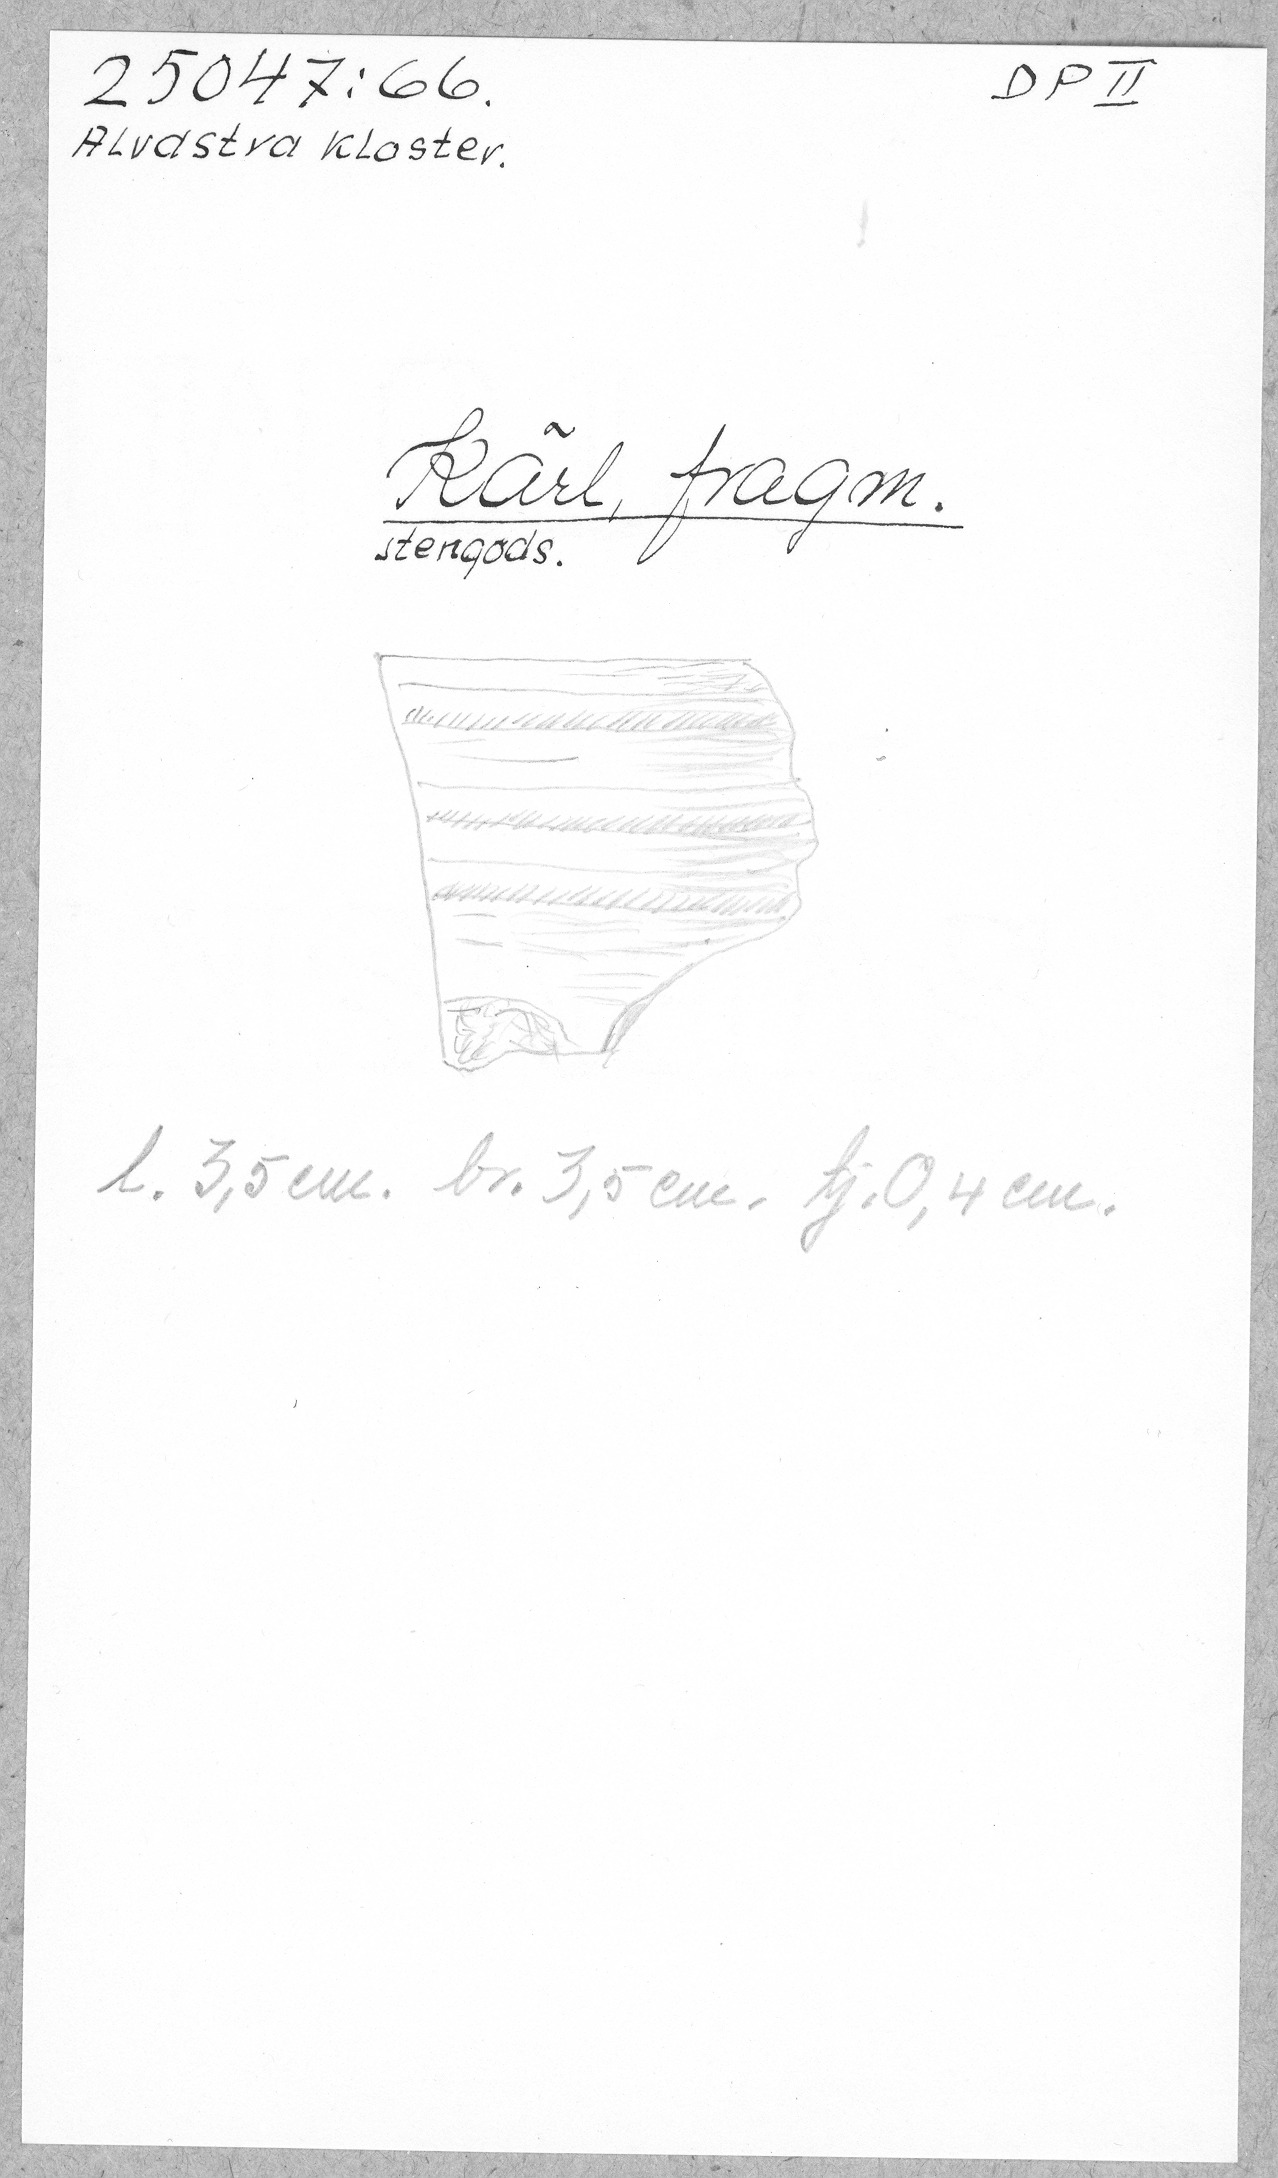 25047:66.
DP II
Alvastra kloster.
Kärl, fragm.
stengods.
l. 3,5 cm. br. 3,5 cm. tj. 0,4 cm.